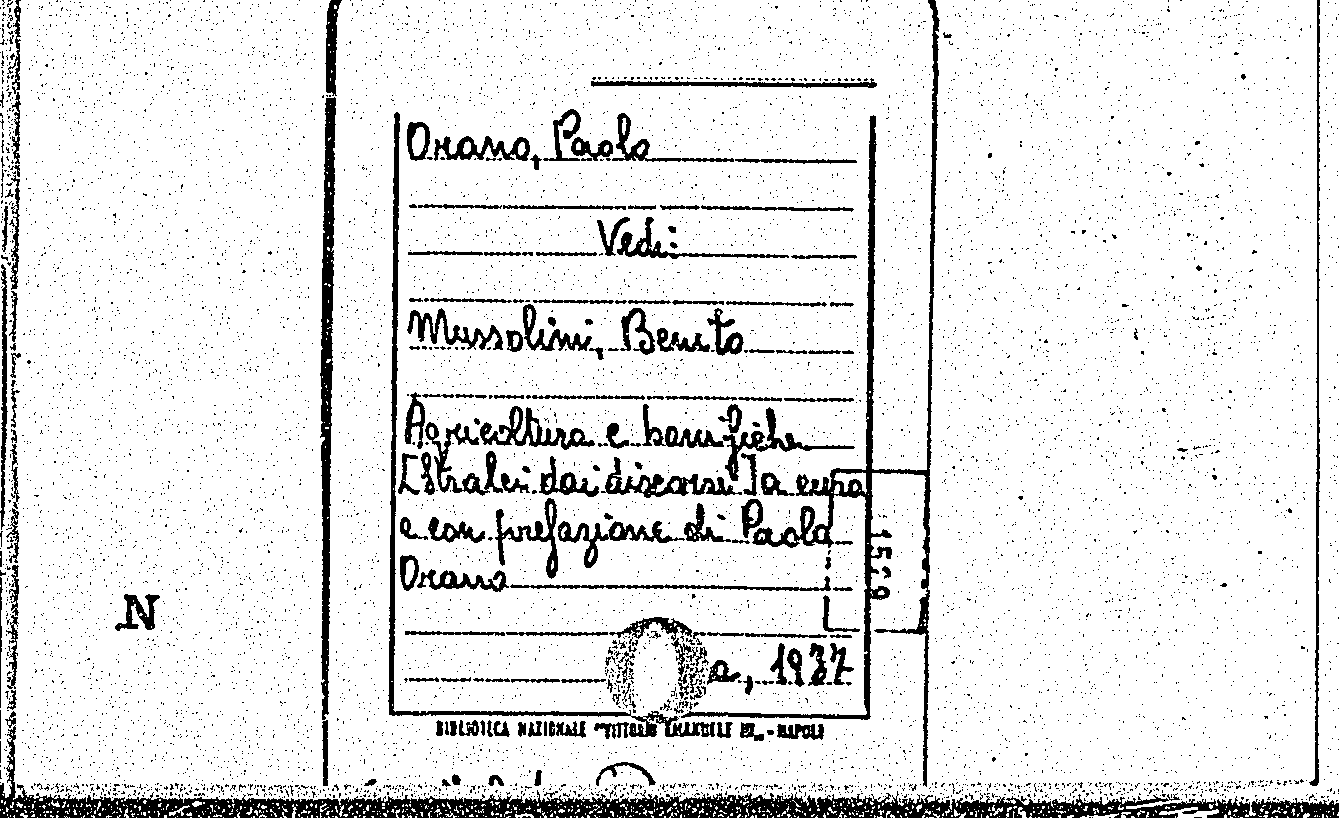 Orano, Paolo
Vedi:
Mussolini, Benito
Agricoltura e bonifiche
[Stralci dai discorsi] a cura
e con prefazione di Paolo
Orano
1529
N
a., 1937
BIBLIOTECA NAZIONALE "VITTORIO EMANUELE III" - NAPOLI